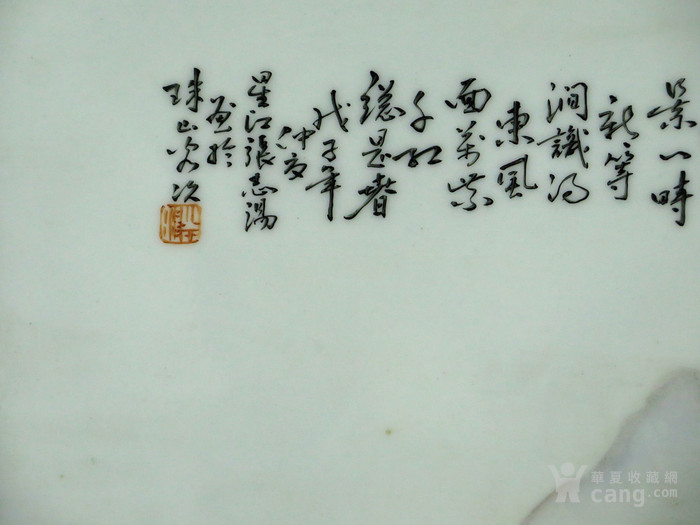 景一時
新等
澗識得
東風
面萬紫
千紅
總是春
戊子年
仲夏
星江張志湯
畫於
珠山客次
華夏收藏網
cang.com